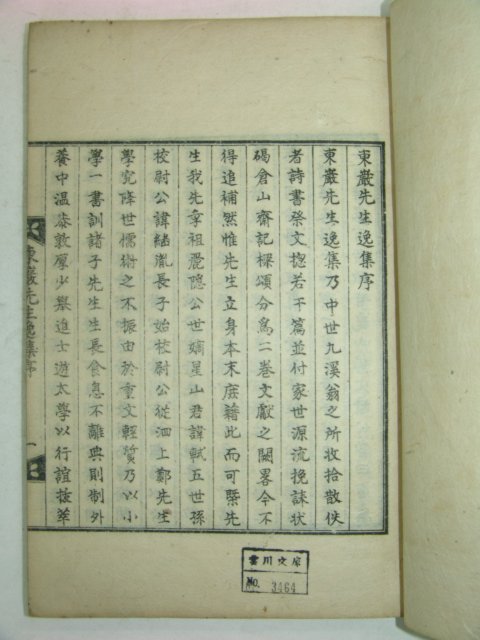 東巖先生逸集序
東巖先生逸集乃中世九溪翁之所收拾散佚
者詩書祭文揔若干篇並付家世源流挽誄狀
碣倉山齋記樑頌分為二卷文獻之闕畧今不
得追補然惟先生立身本末庶藉此而可槩先
生我先享祖麗隱公世嫡星山君諱軾五世孫
校尉公諱繼胤長子始校尉公從泗上鄭先生
學究降世儒術之不振由於重文輕質乃以小
學一書訓諸子先生生長食息不離典則制外
養中溫恭敦厚少舉進士遊太學以行誼擢萃
東巖先生逸集序
一
雲川文庫
NO. 3464